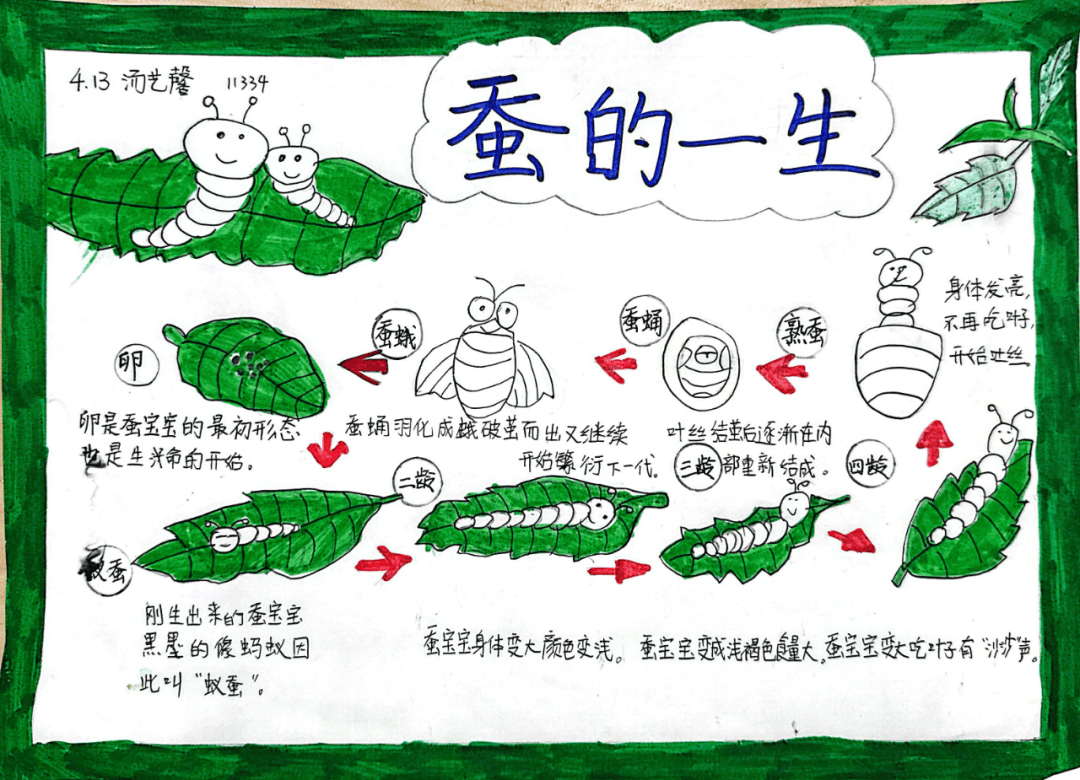 4.13 汤艺馨 11334
蚕的一生
身体发亮,
不再吃叶子,
开始吐丝
熟蚕
蚕蛹
蚕蛾
卵
卵是蚕宝宝的最初形态
也是生命的开始。
蚕蛹羽化成蛾破茧而出又继续
开始繁衍下一代。
叶丝结茧后逐渐在内
部重新结成。
蚁蚕
二龄
三龄
四龄
刚生出来的蚕宝宝
黑墨的像蚂蚁因
此叫“蚁蚕”。
蚕宝宝身体变大颜色变浅。
蚕宝宝变成浅褐色食量大。
蚕宝宝变大吃叶子有“沙沙”声。